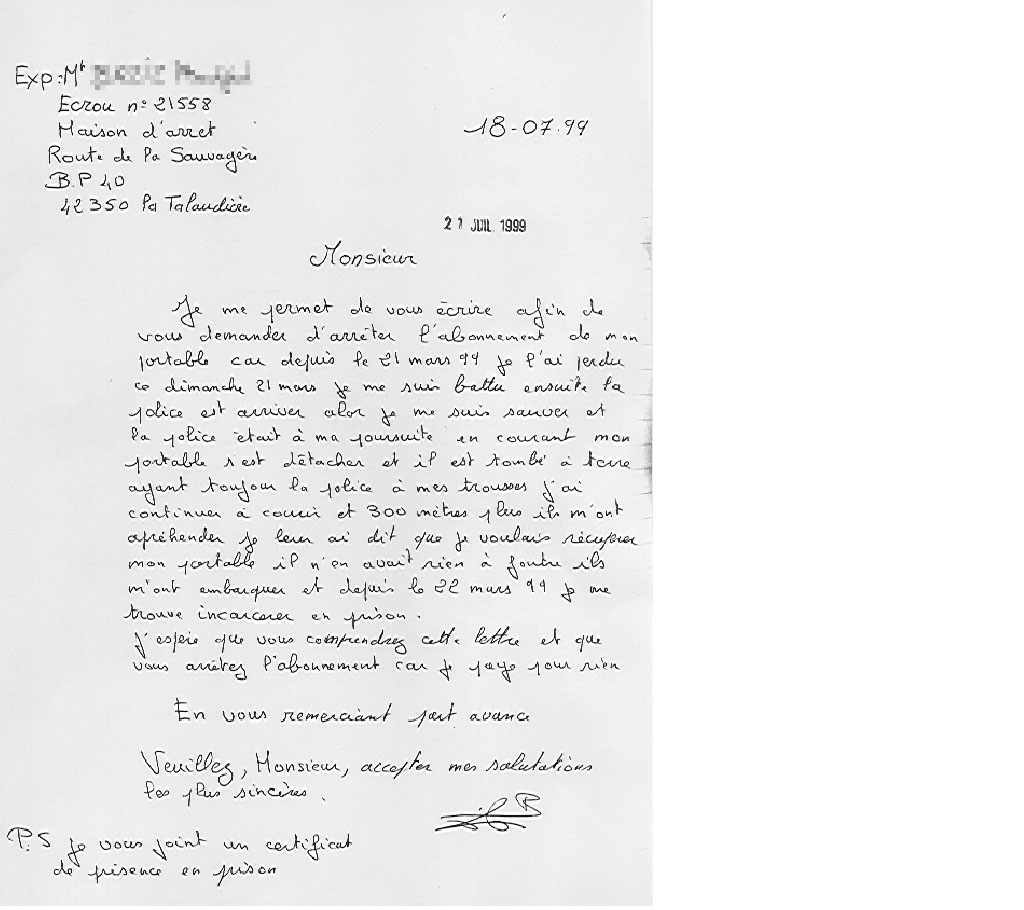 Exp: Mr
Ecrou n° 21558
Maison d'arret
Route de la Sauvagère
B.P 40
42350 la Talaudière
18-07.99
21 JUIL. 1999
Monsieur
Je me permet de vous écrire afin de
vous demander d'arrêter l'abonnement de mon
portable car depuis le 21 mars 99 je l'ai perdu
ce dimanche 21 mars je me suis battu ensuite la
police est arriver alor je me suis sauver et
la police était à ma poursuite en courant mon
portable s'est détacher et il est tombé à terre
ayant toujour la police à mes trousses j'ai
continuer à courir et 300 mètres plus ils m'ont
apréhender je leur ai dit que je voulais récupérer
mon portable il n'en avait rien à foutre ils
m'ont embarquer et depuis le 22 mars 99 je me
trouve incarcerer en prison.
J'espère que vous comprendrez cette lettre et que
vous arrêtez l'abonnement car je paye pour rien
En vous remerciant part avance
Veuillez, Monsieur, accepter mes salutations
les plus sincères.
P.S je vous joint un certificat
de présence en prison